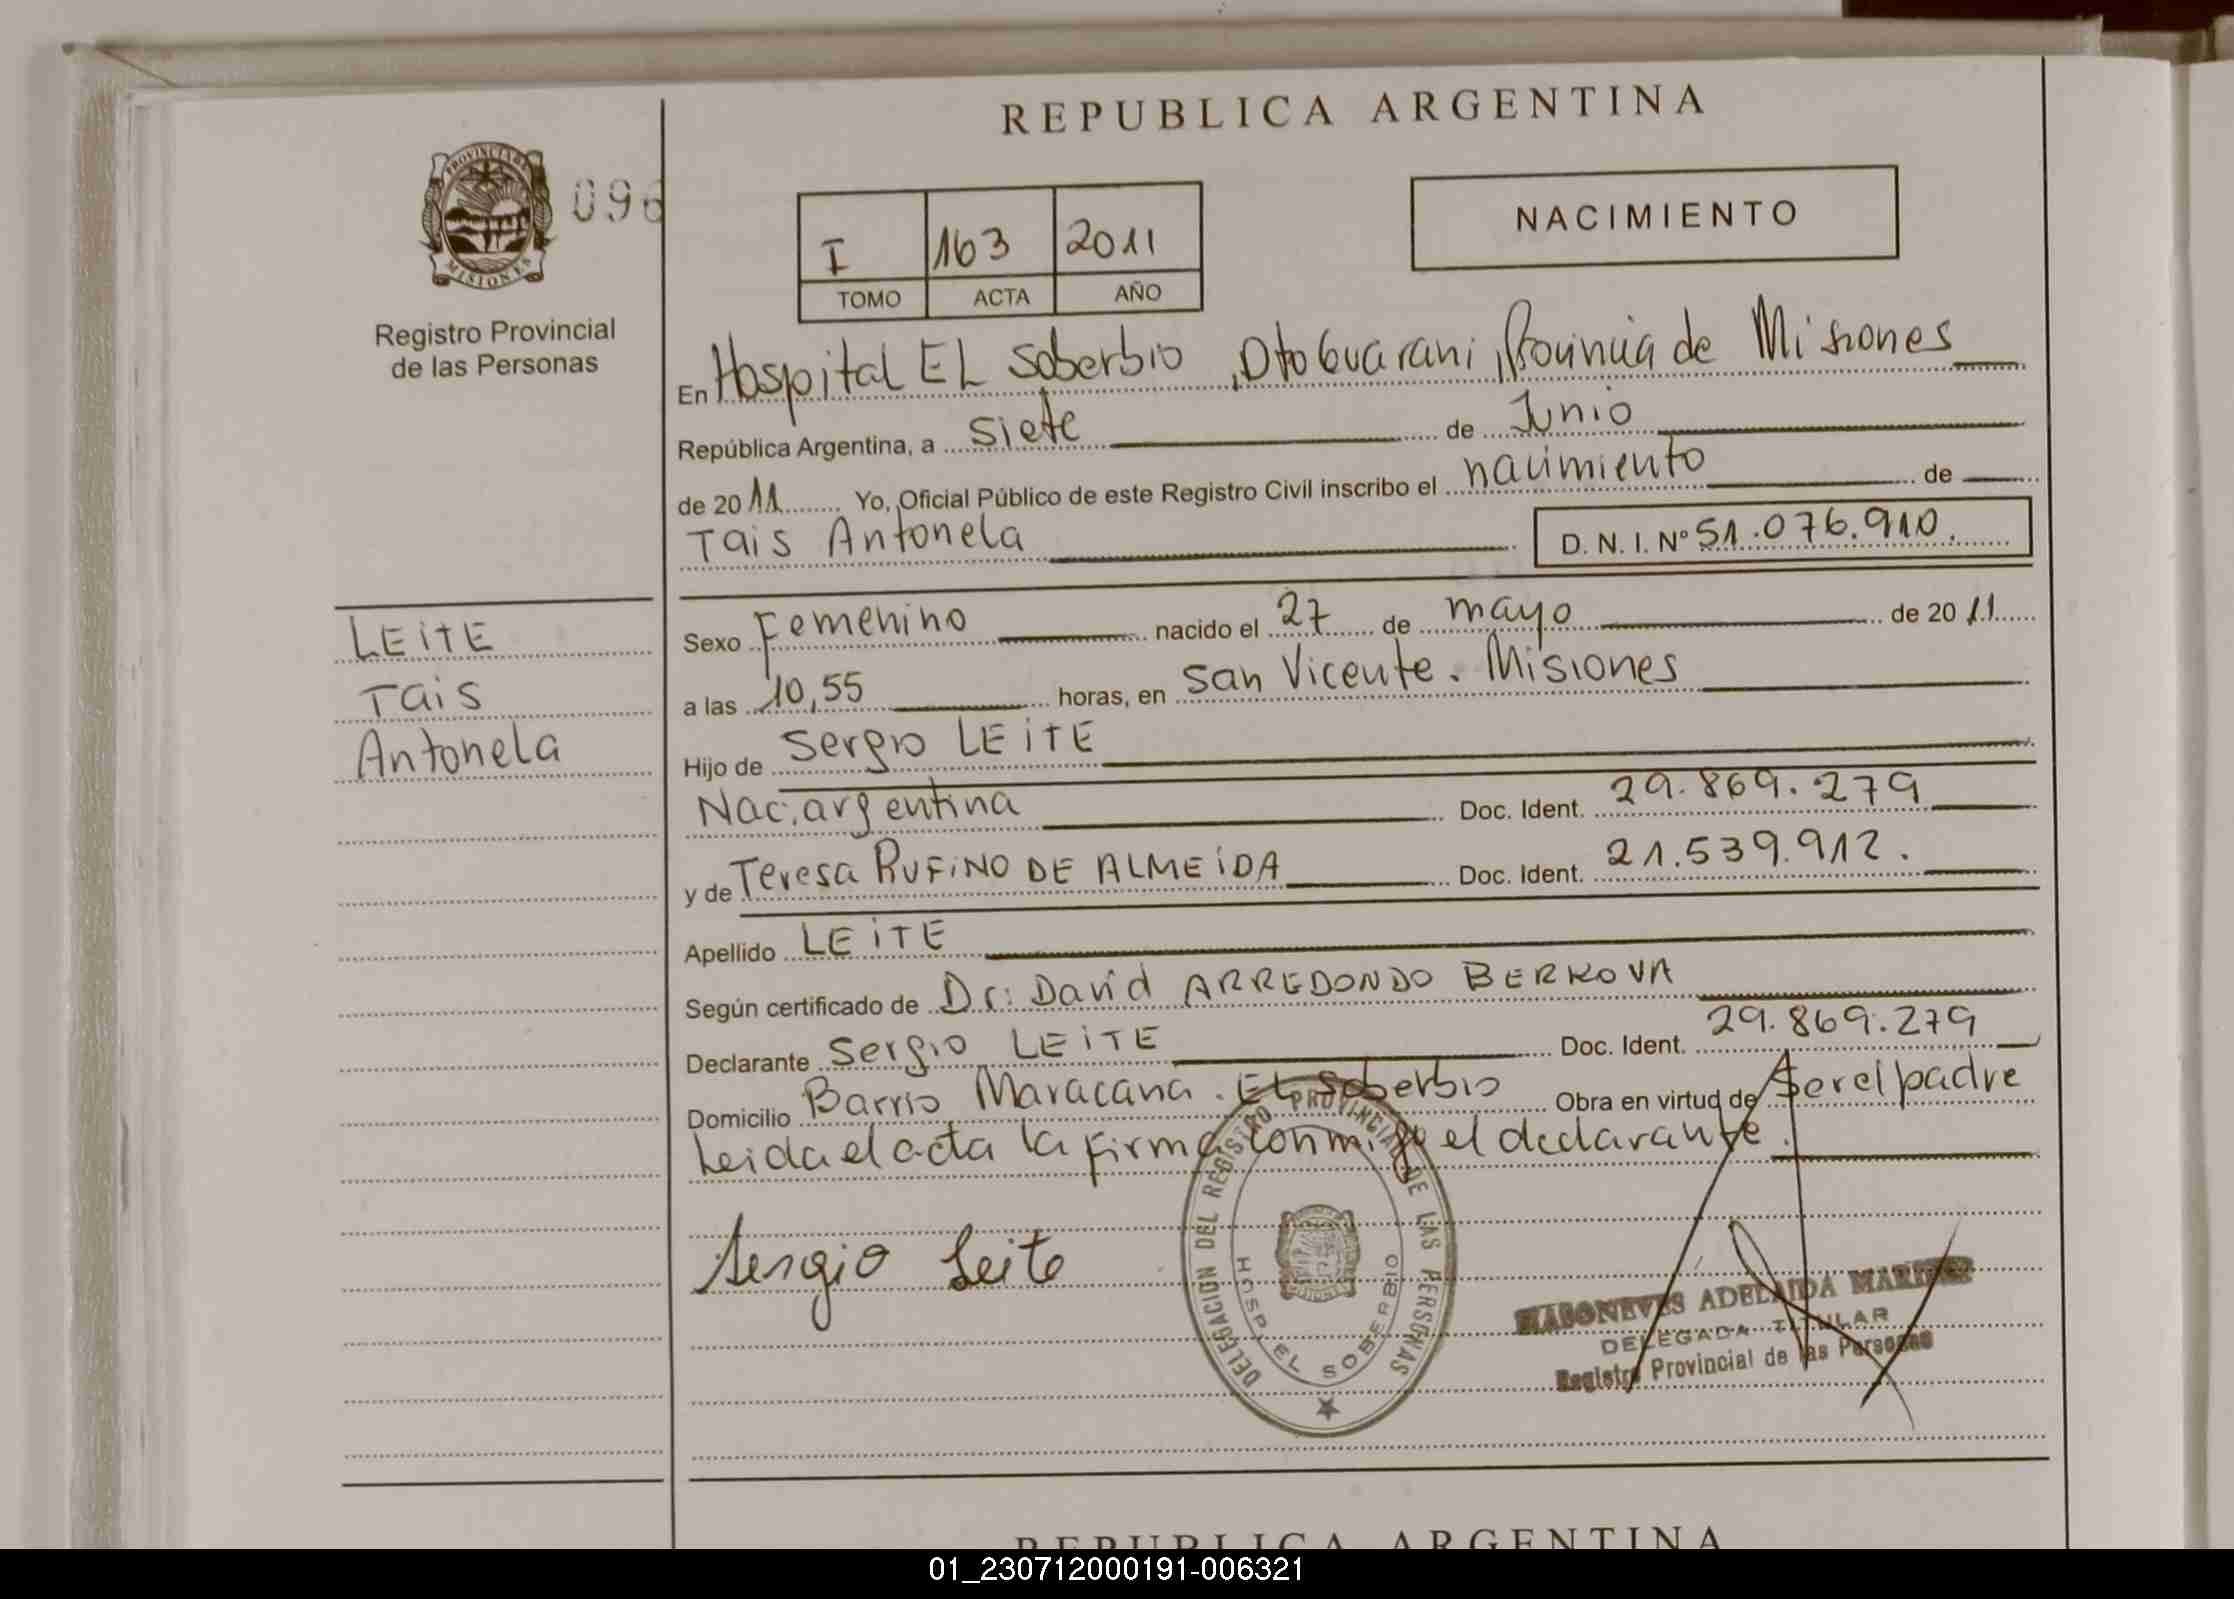 REPUBLICA ARGENTINA
PROVINCIA DE
MISIONES
096
Registro Provincial
de las Personas
I 163 2011
TOMO ACTA AÑO
NACIMIENTO
En Hospital EL Soberbio, Dto Guarani, Provincia de Misiones
República Argentina, a siete de Junio
de 2011 Yo, Oficial Público de este Registro Civil inscribo el nacimiento de
Tais Antonela D. N. I. Nº 51.076.910.
LEITE
Tais
Antonela
Sexo Femenino nacido el 27 de mayo de 2011
a las 10,55 horas, en San Vicente. Misiones
Hijo de Sergio LEITE
Nac: argentina Doc. Ident. 29.869.279
y de Teresa RUFINO DE ALMEIDA Doc. Ident. 21.539.912.
Apellido LEITE
Según certificado de Dr: David ARREDONDO BERKOVA
Declarante Sergio LEITE Doc. Ident. 29.869.279
Domicilio Barrio Maracana. EL Soberbio Obra en virtud de ser el padre
Leida el acta la firma conmigo el declarante.
Sergio Leite
DELEGACION DEL REGISTRO PROVINCIAL DE LAS PERSONAS
HOSP. EL SOBERBIO
ADELAIDA
DELEGADA TITULAR
Registro Provincial de las Personas
REPUBLICA ARGENTINA
01_230712000191-006321